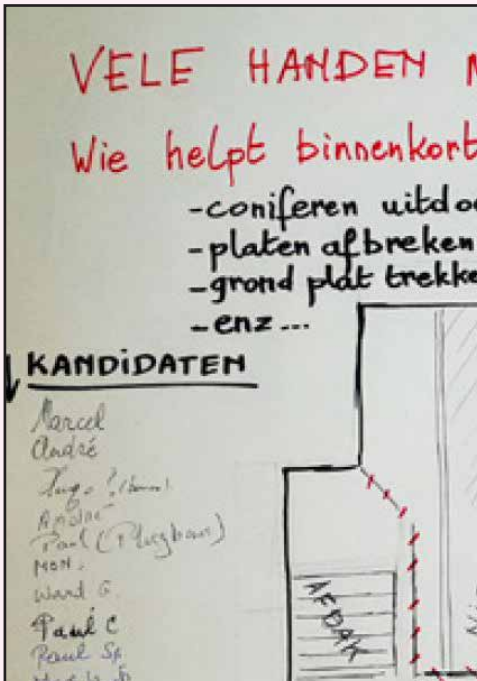 VELE HANDEN
Wie helpt binnenkort
-coniferen uitdo
-platen afbreken
-grond plat trekke
-enz...
KANDiDATEN
Marcel
André
Hugo
André
Paul (
MON.
Ward G.
Paul C
Paul Sp
AFDAK